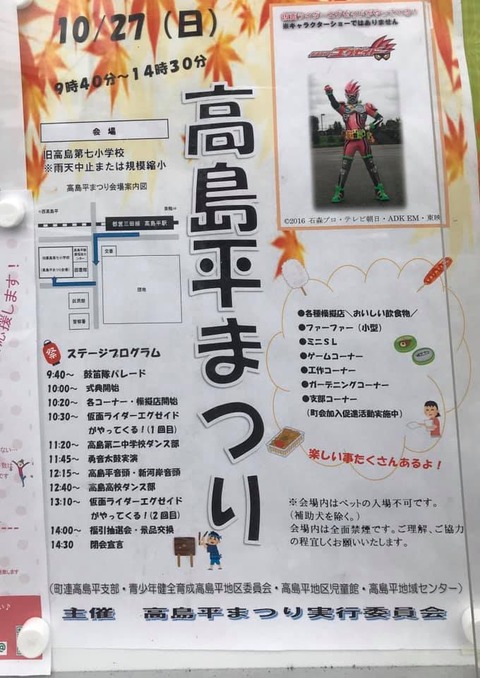 10/27（日）
9時40分～14時30分
高島平まつり
※キャラクターショーではありません
©2016 石森プロ・テレビ朝日・ADK EM・東映
会場
旧高島第七小学校
※雨天中止または規模縮小
高島平まつり会場案内図
都営三田線 高島平駅
交番
図書館
団地
区民館
警察署
祭
ステージプログラム
9:40～ 鼓笛隊パレード
10:00～ 式典開始
10:20～ 各コーナー・模擬店開始
10:30～ 仮面ライダーエグゼイド
がやってくる！（1回目）
11:20～ 高島第二中学校ダンス部
11:45～ 勇音太鼓実演
12:15～ 高島平音頭・新河岸音頭
12:40～ 高島高校ダンス部
13:10～ 仮面ライダーエグゼイド
がやってくる！（2回目）
14:00～ 福引抽選会・景品交換
14:30 閉会宣言
●各種模擬店＼おいしい飲食物／
●ファーファー（小型）
●ミニＳＬ
●ゲームコーナー
●工作コーナー
●ガーデニングコーナー
●支部コーナー
（町会加入促進活動実施中）
楽しい事たくさんあるよ！
※会場内はペットの入場不可です。
（補助犬を除く。）
会場内は全面禁煙です。ご理解、ご協力
の程宜しくお願いします。
（町連高島平支部・青少年健全育成高島平地区委員会・高島平地区児童館・高島平地域センター）
主催 高島平まつり実行委員会
応援します！